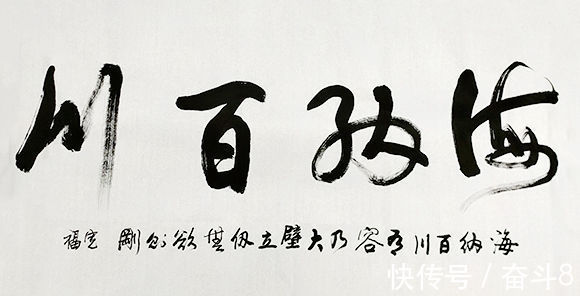 海纳百川
海纳百川有容乃大壁立仞無欲则剛 福
快传号 / 奋斗8